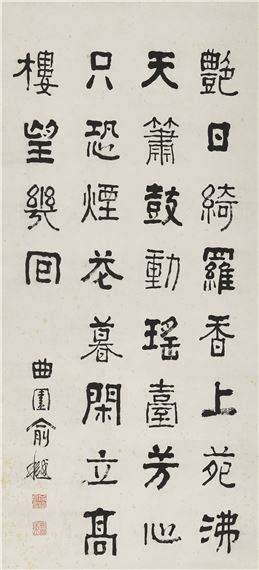 艷日綺羅香上苑沸
天簫鼓動瑤臺芳心
只恐煙花暮閑立高
樓望幾回
曲園俞樾